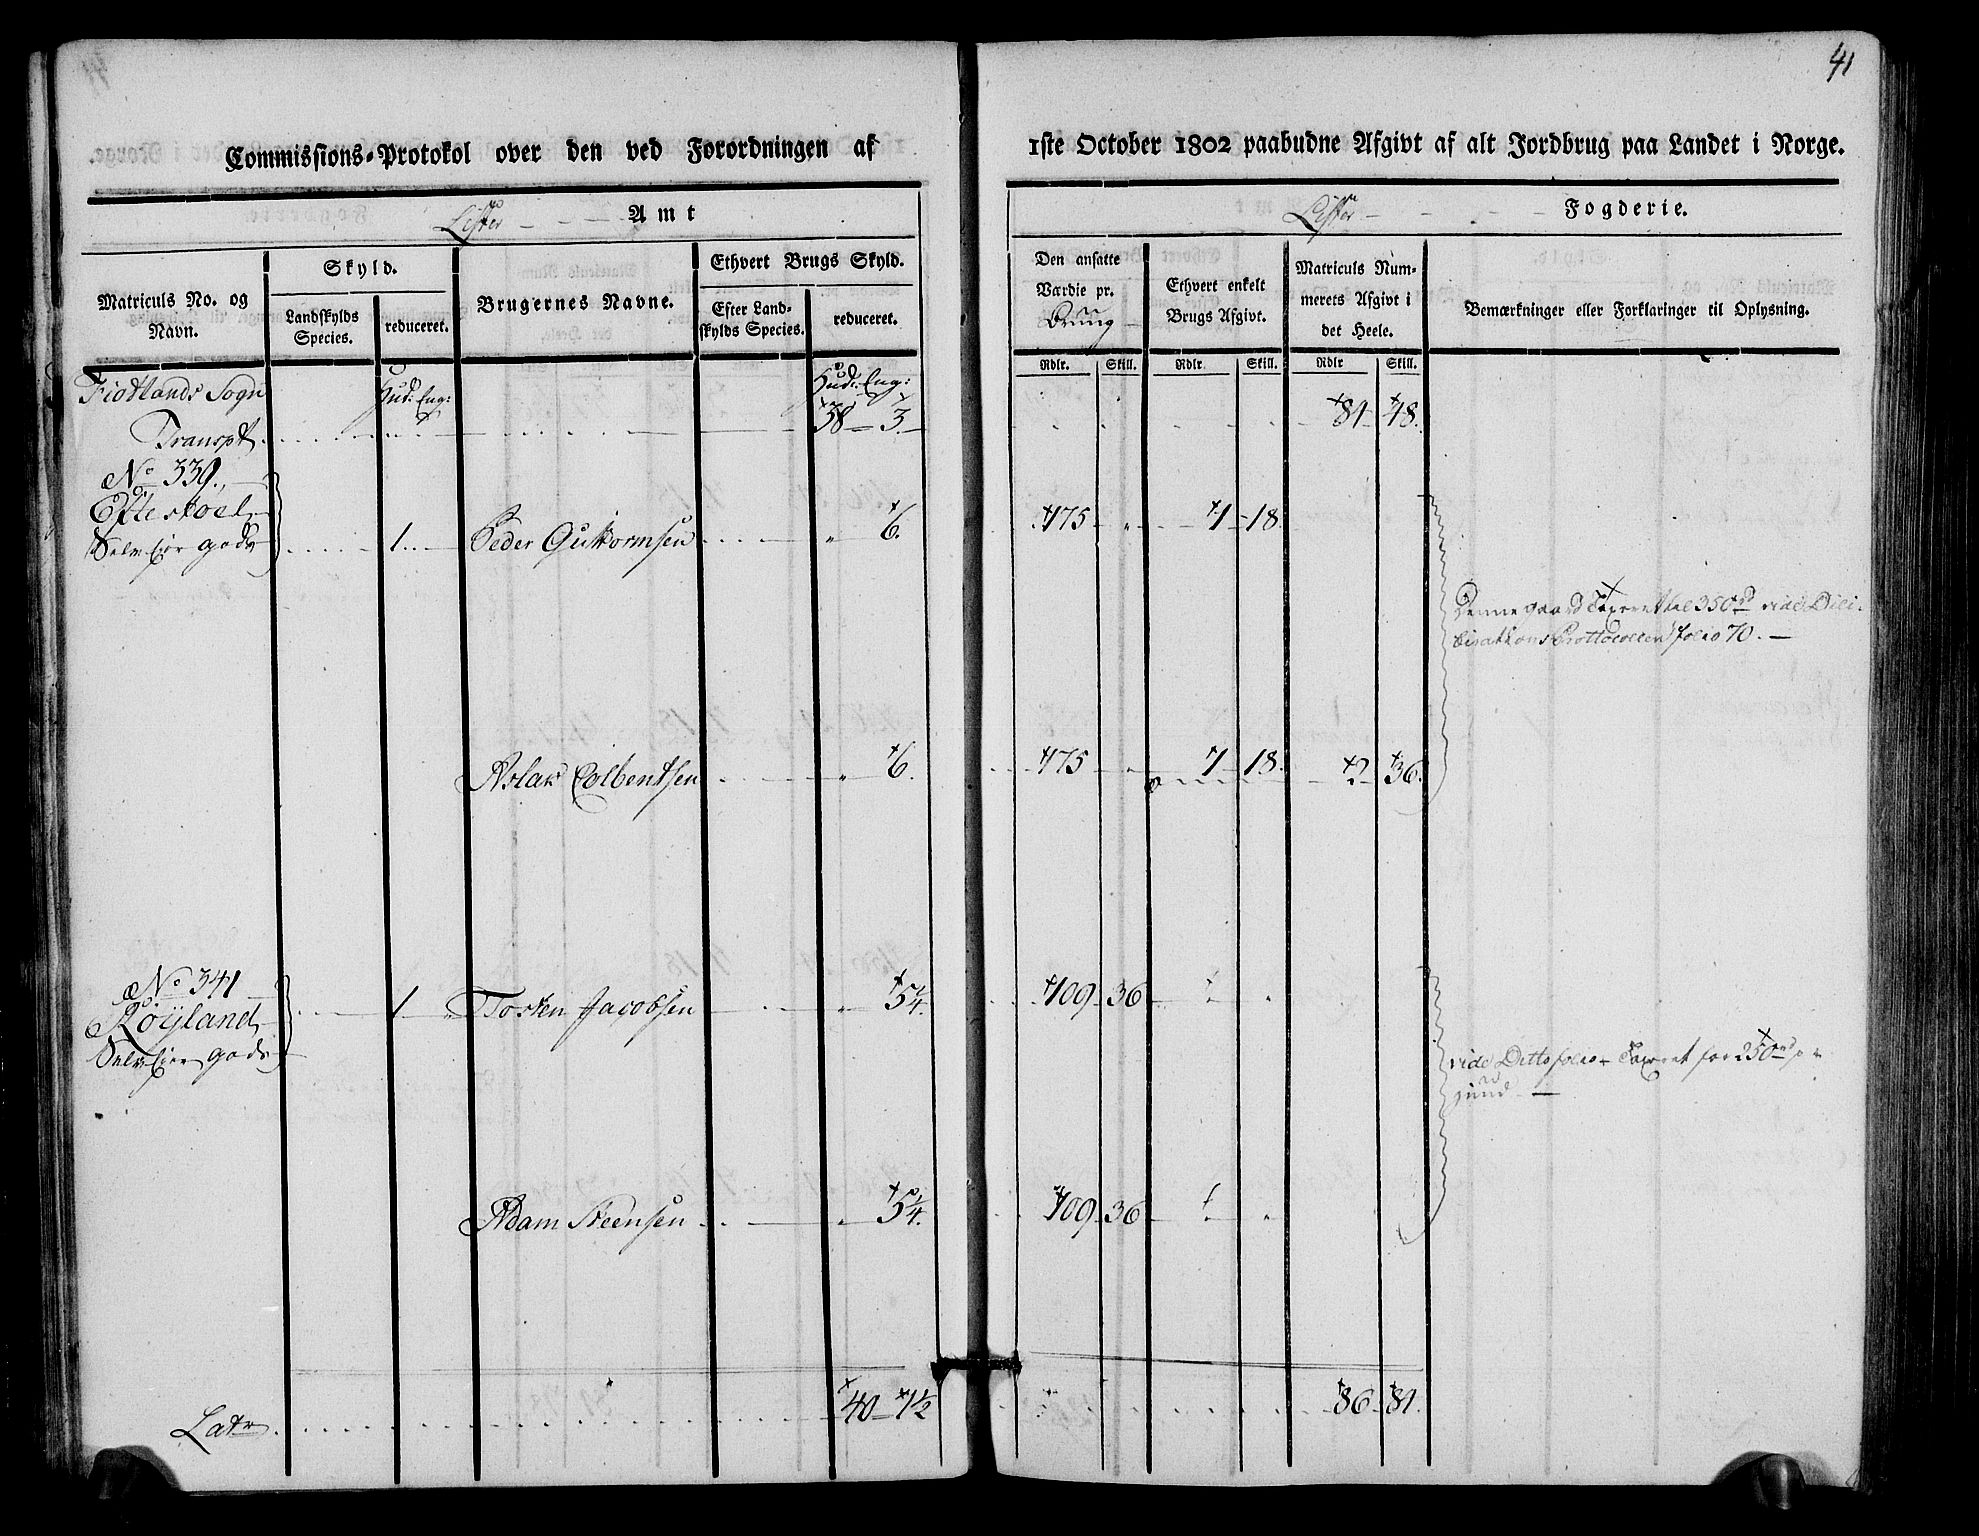 41
Commissions-Protokol over den ved Forordningen af 1ste October 1802 paabudne Afgivt af alt Jordbrug paa Landet i Norge.
Lister Amt
Lister Fogderie.
Matriculs No. og Navn.
Skyld.
Landskylds Species.
reduceret.
Brugernes Navne.
Ethvert Brugs Skyld.
Efter Landskylds Species.
reduceret.
Den ansatte Værdie pr. Brug
Ethvert enkelt Brugs Afgivt.
Matriculs Nummerets Afgivt i det Heele.
Bemærkninger eller Forklaringer til Oplysning.
Rdlr. Skill. Rdlr Skill. Rdlr Skill.
Fiotlands Sogn Hud: Eng: Hud: Eng:
Transpt 38 3 81 48.
No 339.
Eftestøel
Selveier gods 1 Peder Guttormsen " 6. 175 " 1 18
Denne gaard Taxeret til 350 rd vide Deli-
berations Prottocollen folio 70.
Aslak Colbentsen " 6. 175 " 1 18. 2 36.
No 341
Röyland 1 Tosten Jacobsen " 5 1/4. 109 36 "
Selveier gods
vide Ditto folio Taxeret for 250 rd
Adam Steensen " 5 1/4. 109 36 "
Latr 40 1 1/2 86 84.